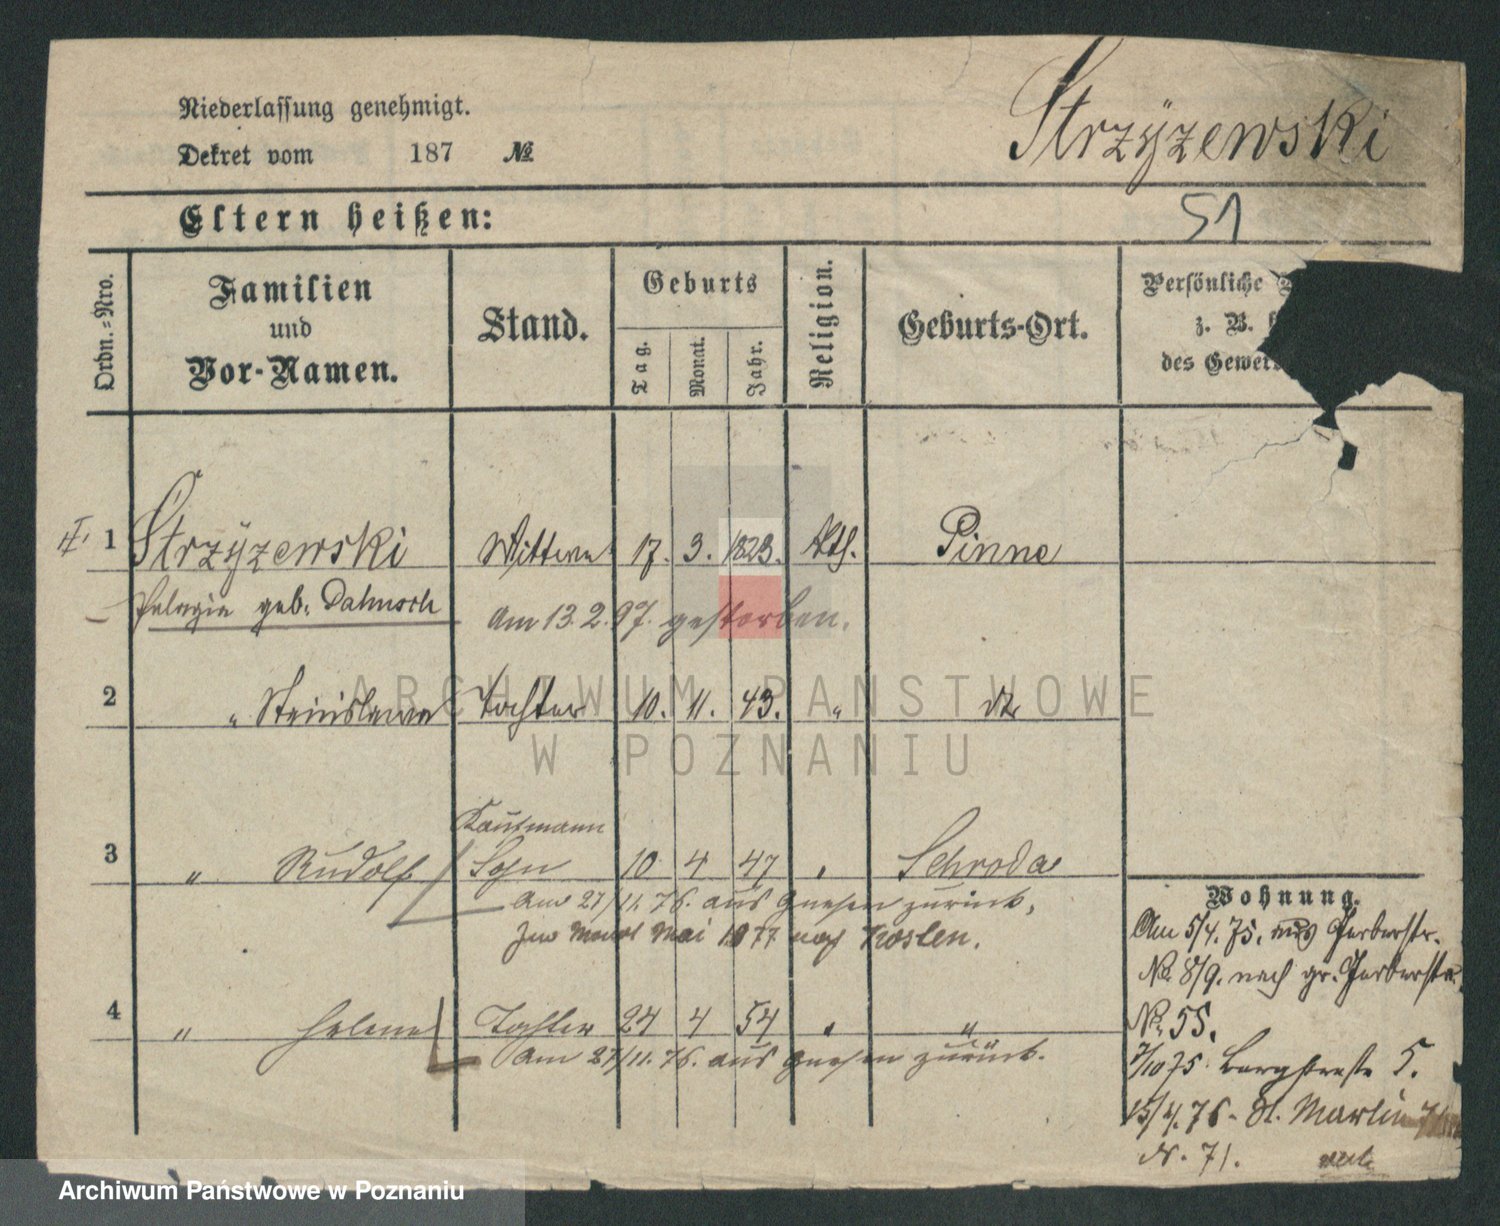 Niederlassung genehmigt.
Strzyzewski
Dekret vom 187 №
Eltern heißen:
51
Ordn.=Nro.
Familien
und
Vor-Namen.
Stand.
Geburts
Tag.
Monat.
Jahr.
Religion.
Geburts-Ort.
Persönliche
z. B.
des Gewer
1 Strzyzewski Wittwe 17. 3. 1823. Kth. Pinne
Pelagia geb. Dahmsch
Am 13.2.97. gestorben.
2 " Stanislawa Tochter 10. 11. 43. " dto
Kaufmann
3 " Rudolf Sohn 10 4 47 " Schroda
Am 27/11. 76. aus Gnesen zurück,
Im Monat Mai 1877 nach Kosten.
4 " Helene Tochter 24 4 54 " "
Am 27/11. 76. aus Gnesen zurück.
Wohnung.
Am 5/4. 75. aus Gerberstr.
No. 8/9. nach gr. Gerberstr.
No. 55.
7/10 75. Bergstraße 5.
15/4. 76 - St. Martin
Nr. 71.
ARCHIWUM PAŃSTWOWE
W POZNANIU
Archiwum Państwowe w Poznaniu